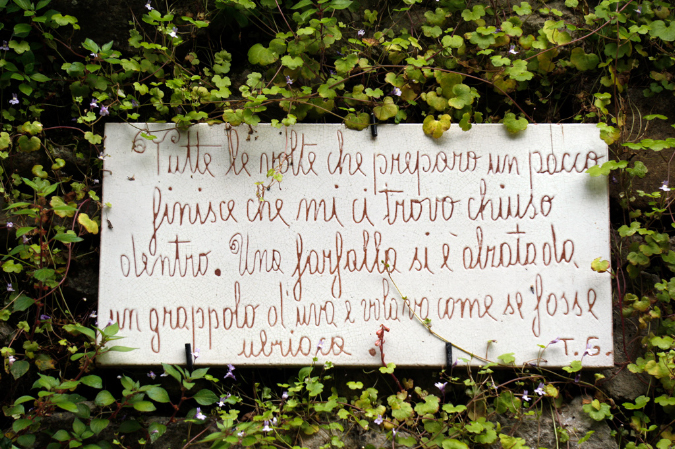 Tutte le volte che preparo un pacco
finisce che mi ci trovo chiuso
dentro. Una farfalla si è alzata da
un grappolo d'uva e volava come se fosse
ubriaca T. G.